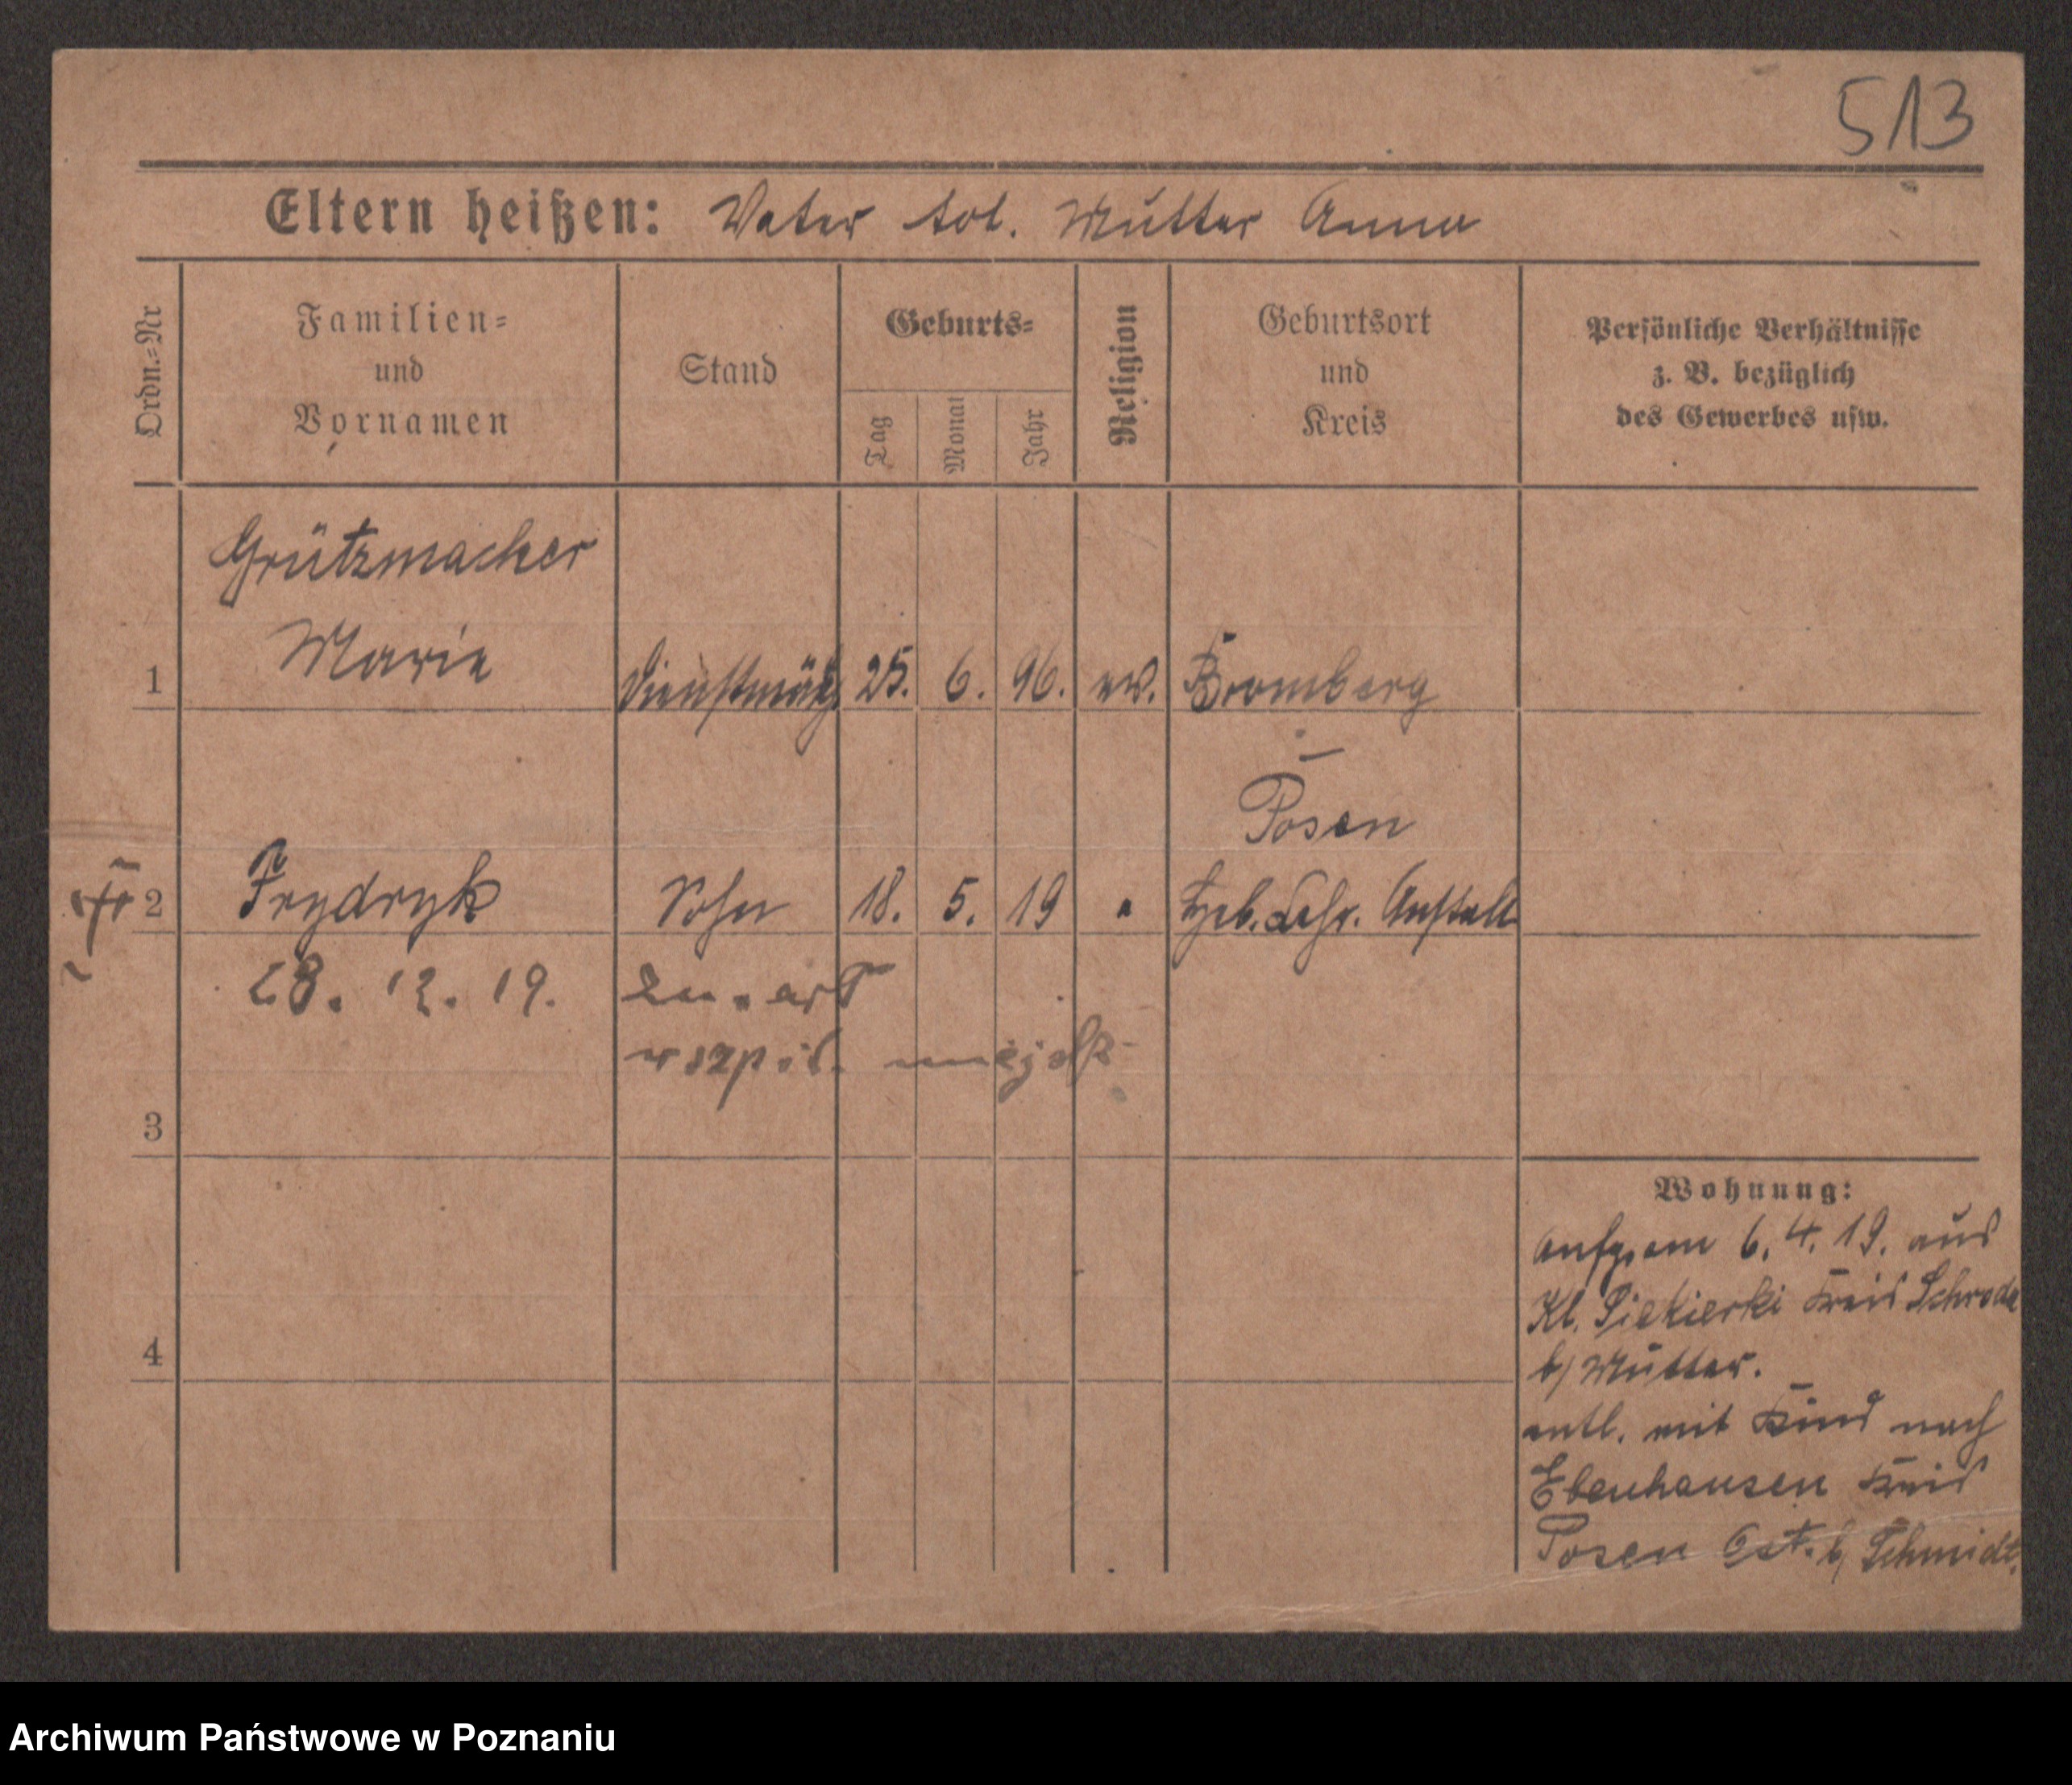 513
Eltern heißen: Vater tot. Mutter Anna
Ordn.-Nr
Familien-
und
Vornamen
Stand
Geburts-
Tag
Monat
Jahr
Religion
Geburtsort
und
Kreis
Persönliche Verhältnisse
z. B. bezüglich
des Gewerbes usw.
Grützmacher
1 Marie Dienstmäg. 25. 6. 96. ev. Bromberg
Posen
2 Frydryk Sohn 18. 5. 19 " Heb. Lehr. Anstalt
28. 12. 19.
w szpit. miejsk
3
4
Wohnung:
Anfg. am 6. 4. 19. aus
Kl. Siekierki Kreis Schroda
b/ Mutter.
entl. mit Kind nach
Ebenhausen Kreis
Posen Ost. b/ Schmidt.
Archiwum Państwowe w Poznaniu